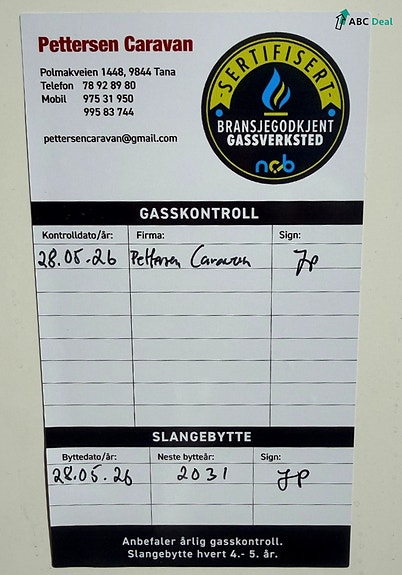 ABC Deal
Pettersen Caravan
Polmakveien 1448, 9844 Tana
Telefon 78 92 89 80
Mobil 975 31 950
995 83 744
pettersencaravan@gmail.com
SERTIFISERT
BRANSJEGODKJENT
GASSVERKSTED
ncb
GASSKONTROLL
Kontrolldato/år: Firma: Sign:
28.05.26 Pettersen Caravan JP
SLANGEBYTTE
Byttedato/år: Neste bytteår: Sign:
28.05.26 2031 JP
Anbefaler årlig gasskontroll.
Slangebytte hvert 4.- 5. år.